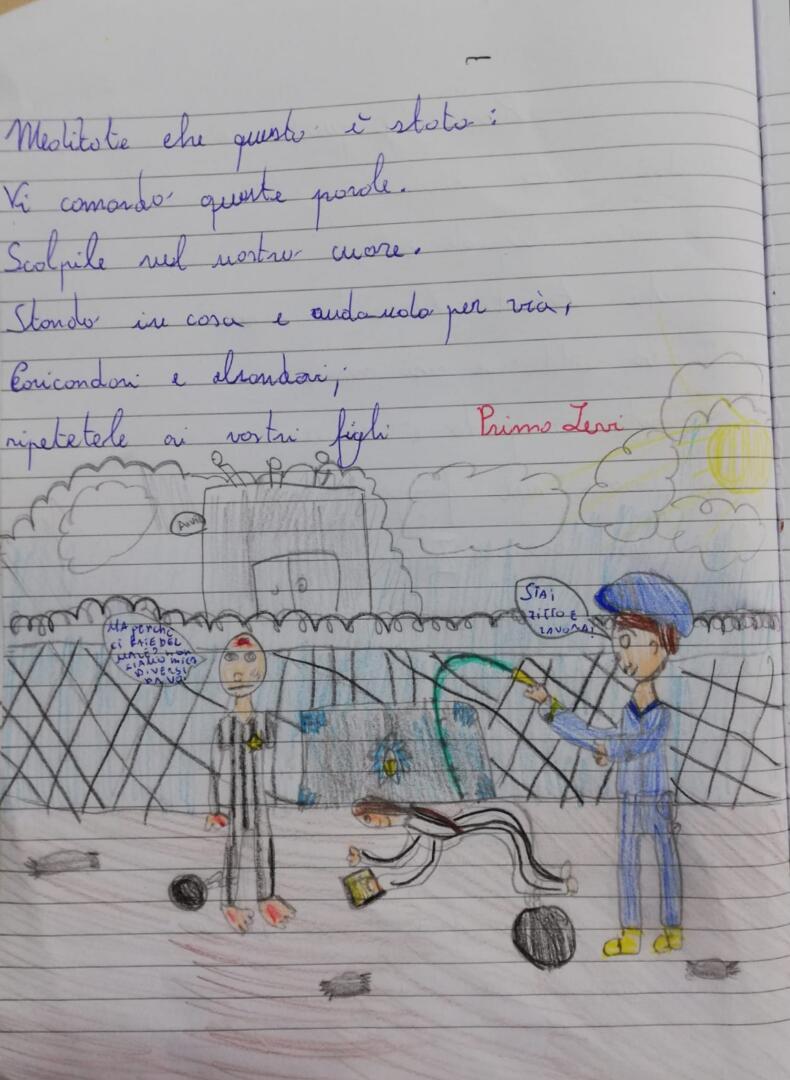 Meditate che questo è stato:
Vi comando queste parole.
Scolpile nel vostro cuore.
Stando in casa e andando per via,
Coricandovi e alzandovi;
ripetetele ai vostri figli
Primo Levi
STAI
ZITTO E
LAVORA!
MA perchè
ci FATE DEL
MALE? non
SIAMO mica
DIVERSI
DA VOI